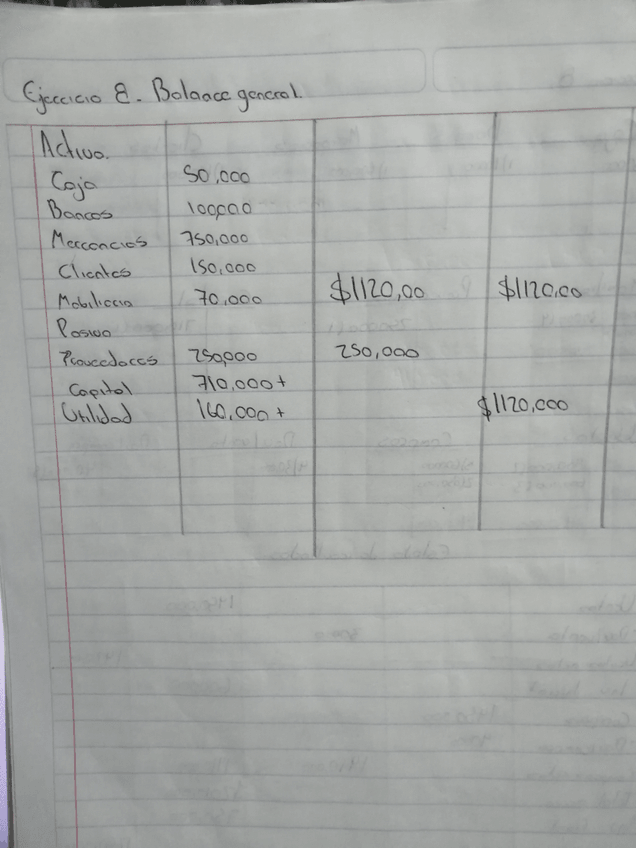 Ejercicio 8. Balance general.
Activo.
Caja 50,000
Bancos 100,000
Mercancias 750,000
Clientes 150,000
Mobiliario 70,000 $1120,00 $1120,00
Pasivo
Proveedores 250,000 250,000
Capital 710,000+
Utilidad 160,000+ $1120,000